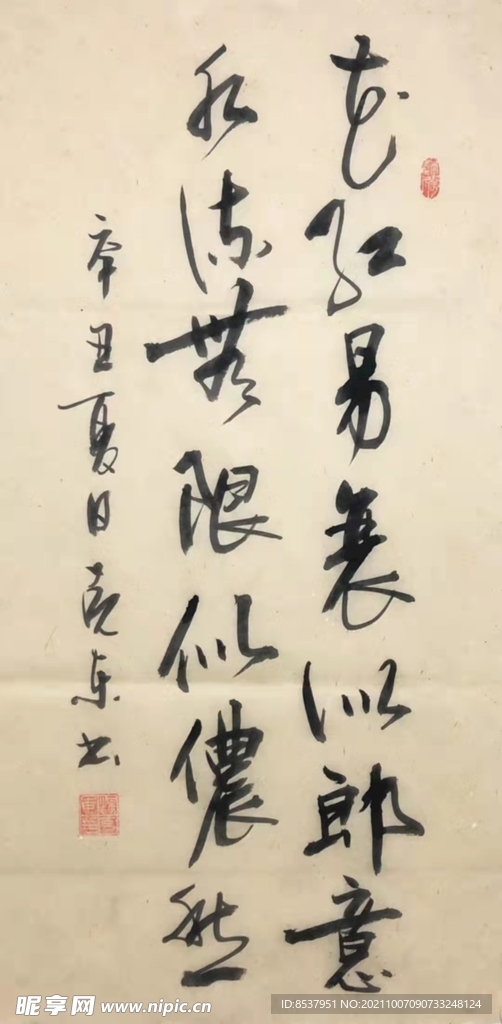 花红易衰似郎意
水流無限似儂愁
辛丑夏日克东书
昵享网 www.nipic.cn
ID:8537951 NO:20211007090733248124